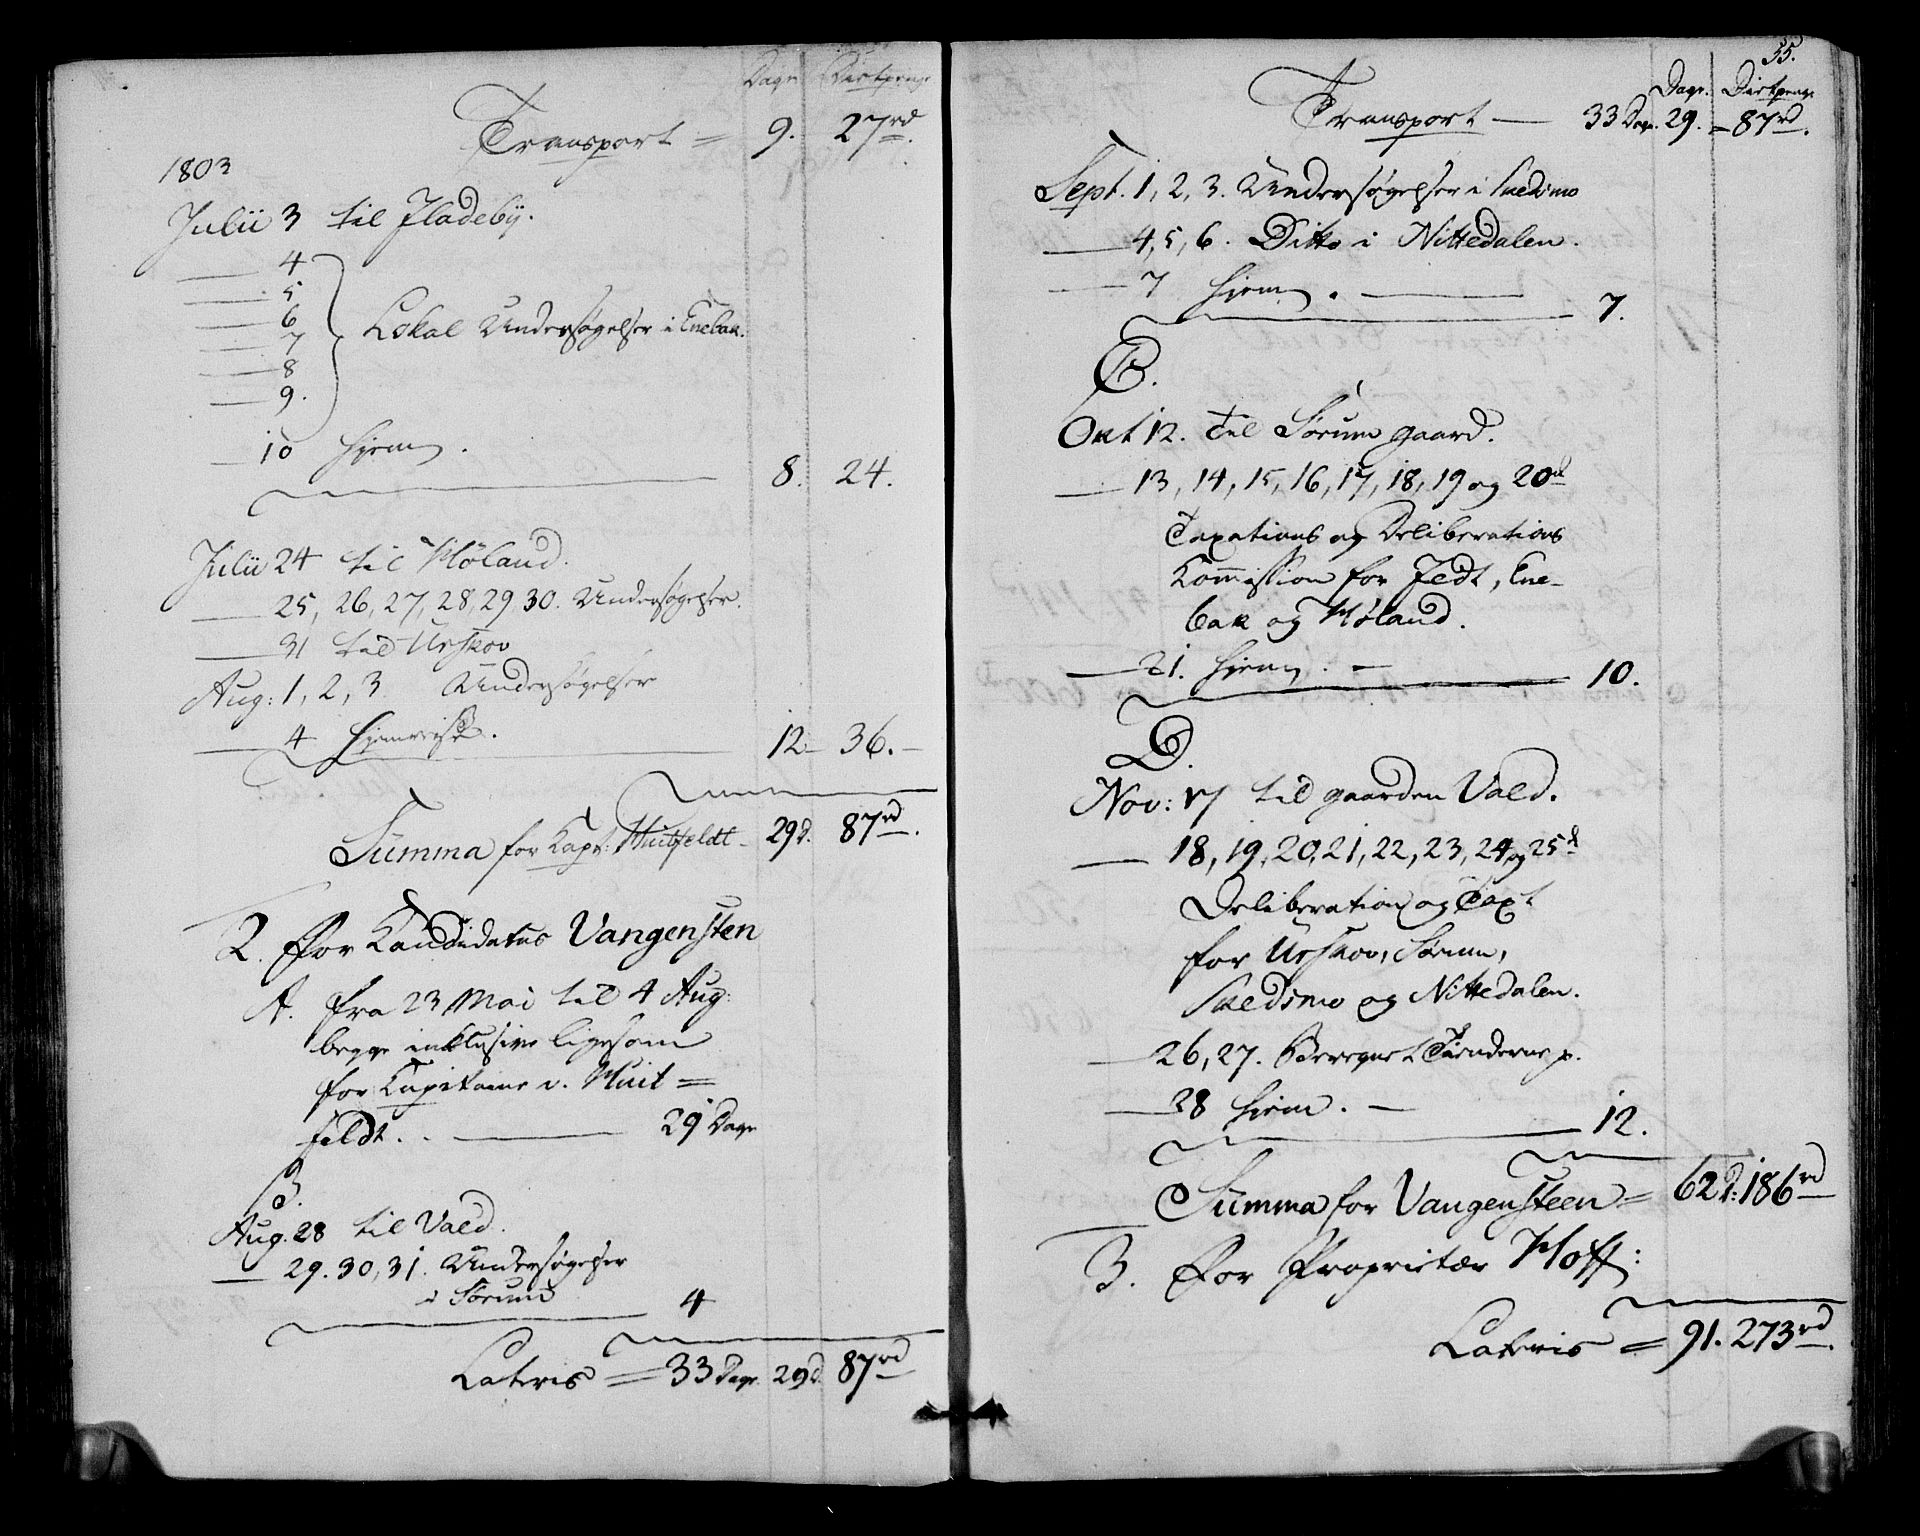 Dage Diætpenge
Transport = 9. 27rd.
1803
Julii 3 til Fladebÿ.
4
5
6
7
8
9.
Lokal Undersøgelser i Enebak.
10 hjem.
8. 24.
Julii 24 til Høland.
25, 26, 27, 28, 29 30. Undersøgelser.
31 til Urskov
Aug: 1, 2, 3. Undersøgelser
4 hjemreise.
12 36.
Summa for Kapt: Huitfeldt 29d. 87rd.
2. For Kandidatus Vangensten
A. fra 23 Mai til 4 Aug:
begge inklusive ligesom
for Kapitaine v. Huit=
feldt. . 29 Dage
B.
Aug. 28 til Vald.
29. 30, 31. Undersøgelser
i Sørum
4
Lateris = 33 Dage. 29d. 87rd
55.
Dage. Diætpenge
Transport — 33 Dage. 29. 87rd.
Sept. 1, 2, 3. Undersøgelser i Skedsmo
4, 5, 6. Ditto i Nittedalen.
7 hjem.
7.
C.
Okt 12. til Sørum gaard.
13, 14, 15, 16, 17, 18, 19 og 20de
Taxations og Deliberations
Kommission for Fedt, Ene-
bak og Høland.
21. hjem.
10.
D.
Nov: 17 til gaarden Vald.
18, 19, 20, 21, 22, 23, 24 og 25d
Deliberation og Taxt
for Urskov, Sørum,
Skedsmo og Nittedalen.
26, 27. Beregnet Tienderne p.
28 hjem.
12.
Summa for Vangensteen = 62d: 186rd
3. For Proprietær Hoff:
Lateris = 91. 273rd.